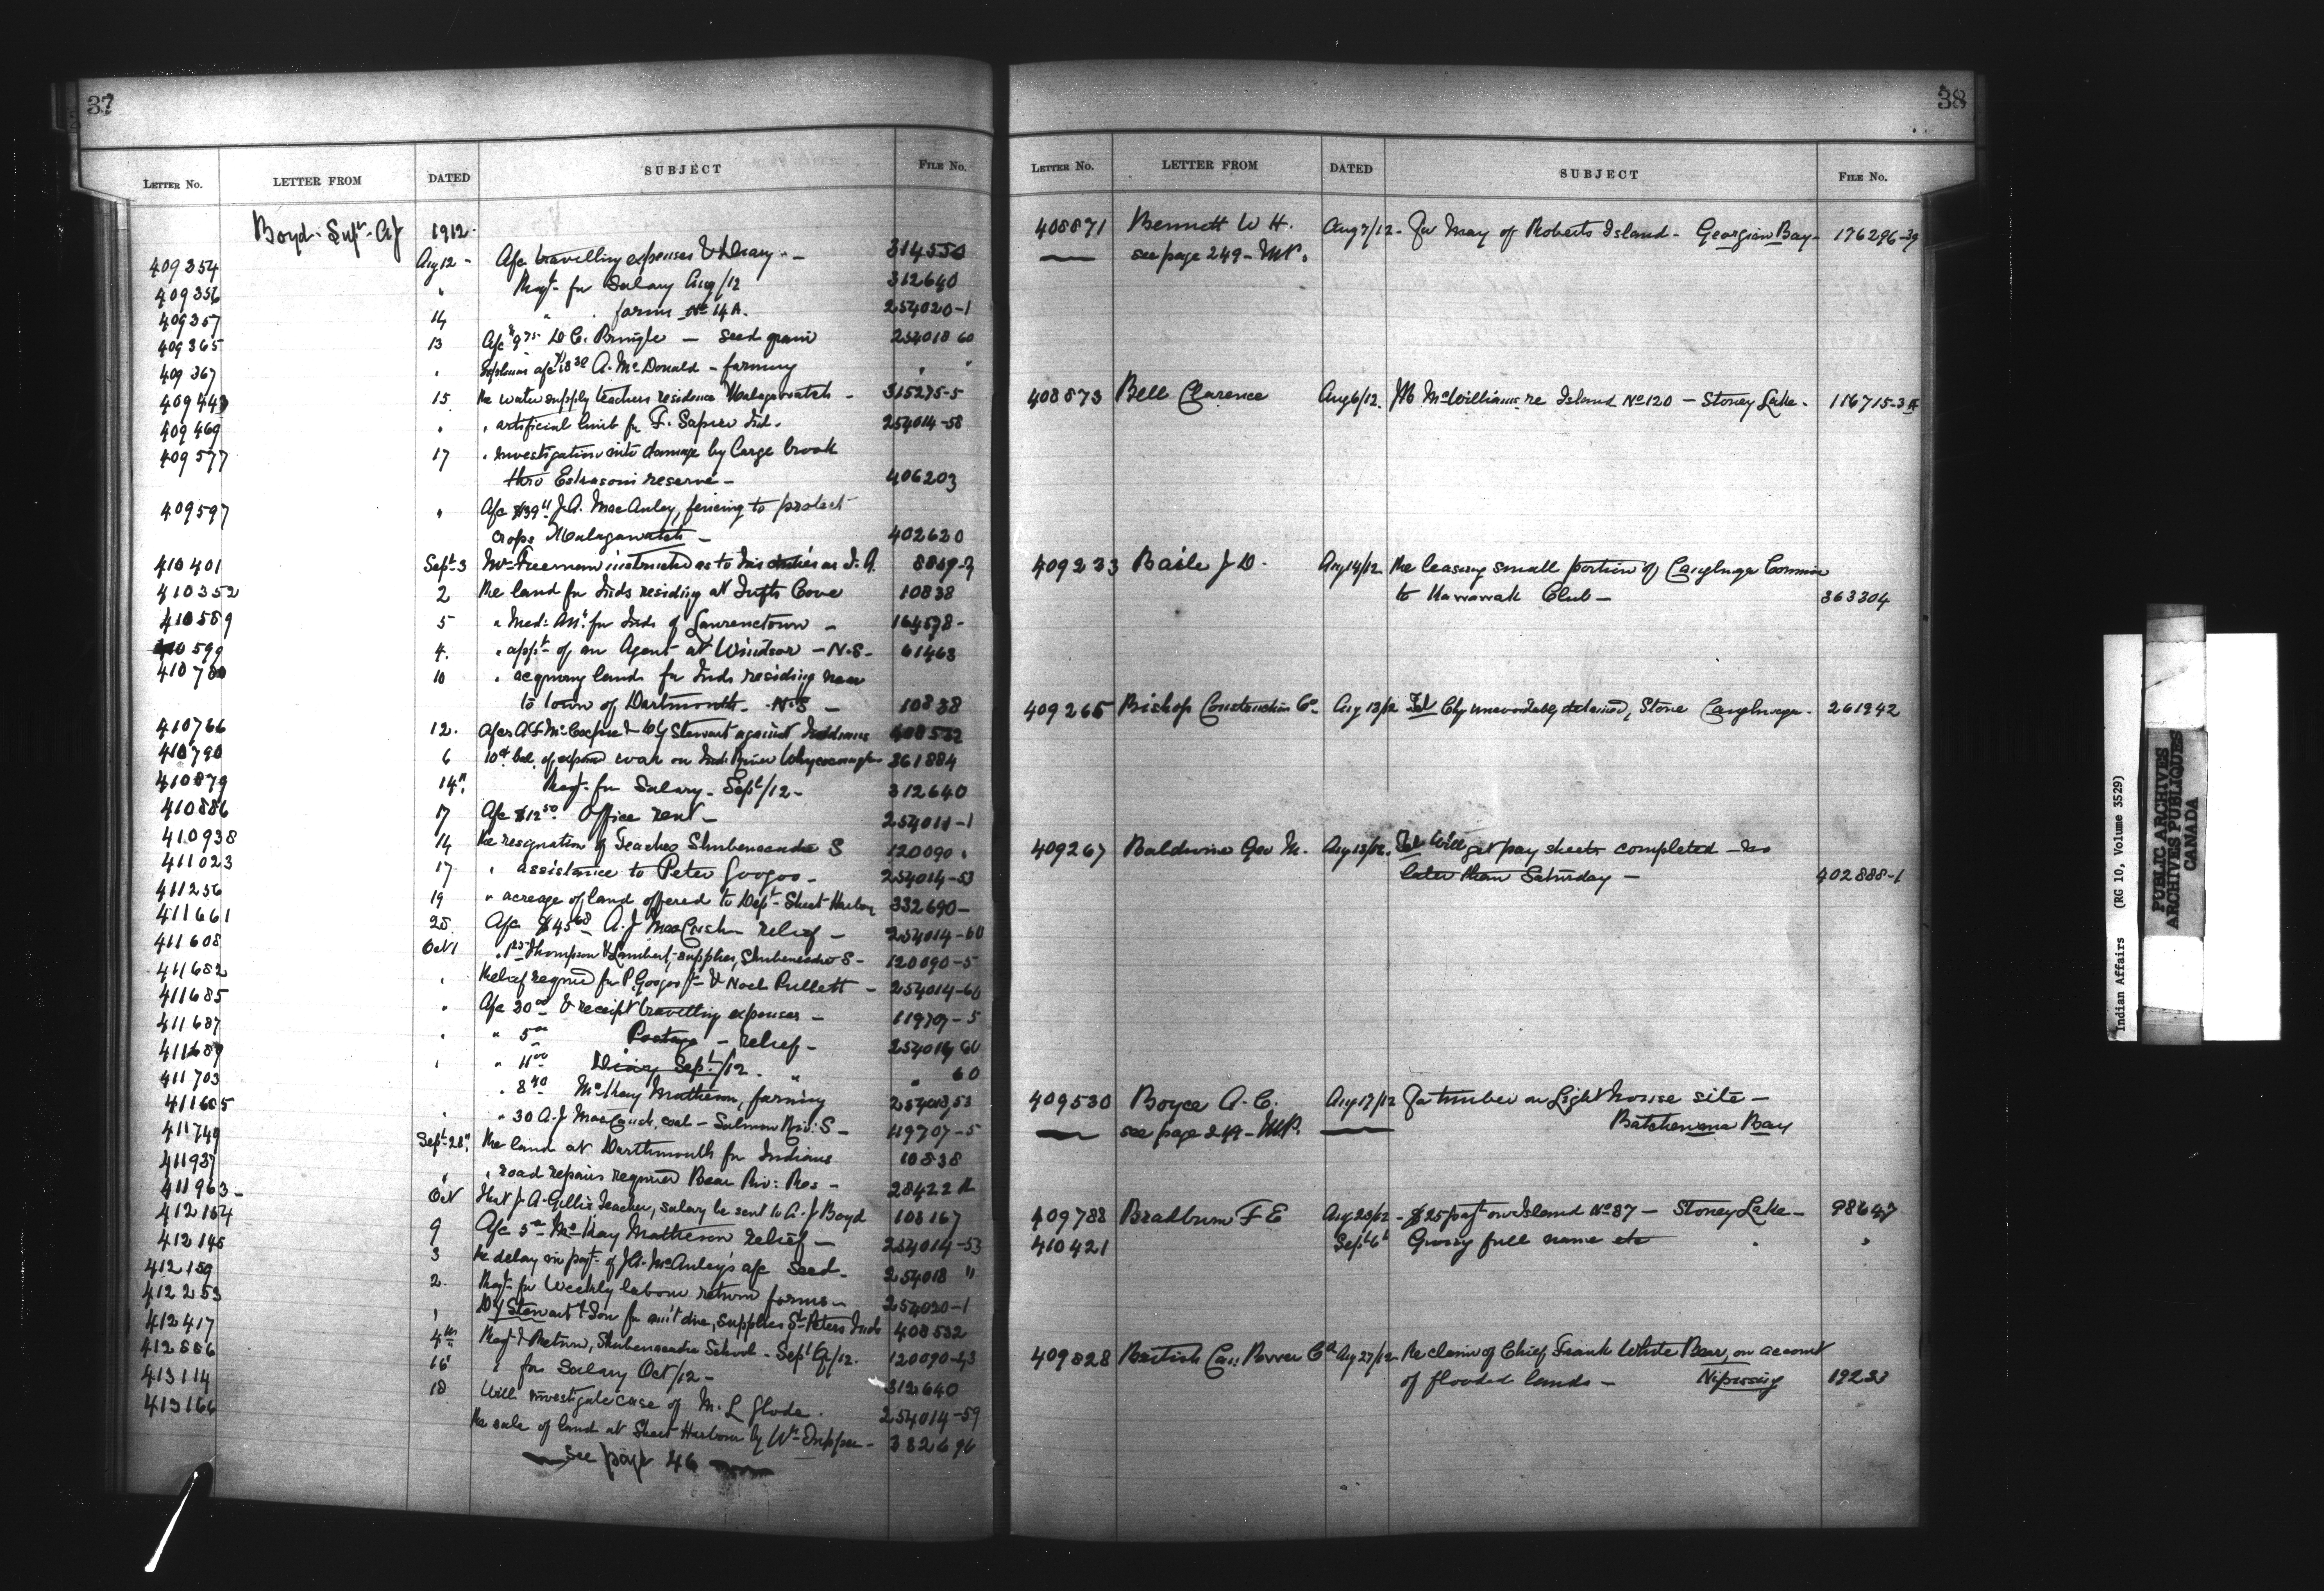 37
LETTER No. LETTER FROM DATED SUBJECT FILE No.
Boyd - Supt. A J 1912
409354 Aug 12 - A/c travelling expenses & Diary - 314550
409356 " Reqt. for Salary Aug/12 312640
409357 14 " " forms No 14A. 254020-1
409365 13 A/c $9 75 D C. Pringle - seed grain 254018 60
409367 " Explains a/c $18 30 A. McDonald - farming " "
409443 15 Re water supply teachers residence Malagawatch - 315275-5
409469 " " artificial limb for F. Sapier Ind. 254014-58
409577 17 " Investigation into damage by large brook
thro Eskasoni reserve - 406203
409597 " A/c $39 11 J. A. MacAuley, fencing to protect
crops Malagawatch - 402620
410401 Sept. 3 Mr Freeman instructed as to his duties as I. A. 8869-2
410352 2 Re land for Inds residing at Tufts Cove 10838
410589 5 " Med: Att. for Inds of Lawrencetown - 164578 -
410599 4. " appt. of an Agent at Windsor - N.S - 61463
410780 10 " acquiring lands for Inds residing near
to town of Dartmouth - N.S - 10838
410766 12. A/cs A F McCoch & D J Stewart against Indians 408532
410790 6 bal. of expend work on Ind: River Whycocomagh 361884
410879 14" Reqt. for Salary - Sept/12 - 312640
410886 17 A/c $12 50 Office rent - 254011-1
410938 14 Re resignation of Teacher Shubenacadie S 120090 "
411023 17 " assistance to Peter Googoo - 254014-53
411256 19 " acreage of land offered to Dept - Sheet Harbor 332690 -
411661 28 A/c $45 68 A. J MacCuish relief - 254014-60
411608 Oct 1 Thompson & Lambert, supplies, Shubenacadie S - 120090-5
411682 " Relief required for P. Googoo Jr. & Noel Pullett - 254014-60
411685 " A/c 20 00 & receipt travelling expenses - 11970-5
411687 " " 5 00 Postage - relief - 254014 60
411689 " " 11 00 Diary Sept/12 - " " 60
411703 " 8 40 McKay Matheson, farming 254018,53
411605 " " 30 A. J MacCuish, coal - Salmon Riv: S - 119707-5
411749 Sept. 28" Re land at Dartmouth for Indians 10838
411937 " " road repairs required Bear Riv: Res - 28422
411963 - Oct That J A. Gillis Teacher, salary be sent to A. J Boyd 108167
412164 9 A/c 5 00 McKay Matheson relief - 254014-53
412145 3 Re delay in payt. of J.A. McAuley's a/c Seed - 254018 "
412159 2. Reqt. for Weekly labour return forms - 254020-1
412253 " D J Stewart & Son for amt due, supplies St Peters Inds 408532
412417 4th Reqt. & Return, Shubenacadie School - Sept Q/12. 120090-
412886 16 " for Salary Oct/12 - 312640
413114 18 Will investigate case of M. L Glode. 254014-59
413166 Re sale of land at Sheet Harbour by Wm Tupper - 332690
See page 46
38
LETTER No. LETTER FROM DATED SUBJECT FILE No.
408871 Bennett W H. Aug 7/12 - For May of Roberts Island - Georgian Bay - 176296-39
see page 249 - M.P.
408873 Bell Clarence Aug 6/12. McWilliams re Island No 120 - Stoney Lake - 116715-3
409233 Baile J D. Aug 14/12 Re leasing small portion of Caughnaga Common
to Kanawak Club - 363304
409265 Bishop Construction Co. Aug 13/12 Tel Chy unavoidably detained, Stone Caughnaga - 261942
409267 Baldwin Geo M. Aug 13/12. Tel Will get pay sheets completed no
later than Saturday - 402888-1
409530 Boyce A. C. Aug 17/12 For timber on Light house site -
see page 249 - M.P. Batchewana Bay
409788 Bradburn F E Aug 28/12 - $25 payt on Island No 87 - Stoney Lake - 98647
410421 Sept 6" Giving full name etc " "
409828 British Can: Power Co Aug 27/12 - Re claim of Chief Frank White Bear, on account
of flooded lands - Nipissing 19233
Indian Affairs (RG 10, Volume 3529)
PUBLIC ARCHIVES
ARCHIVES PUBLIQUES
CANADA